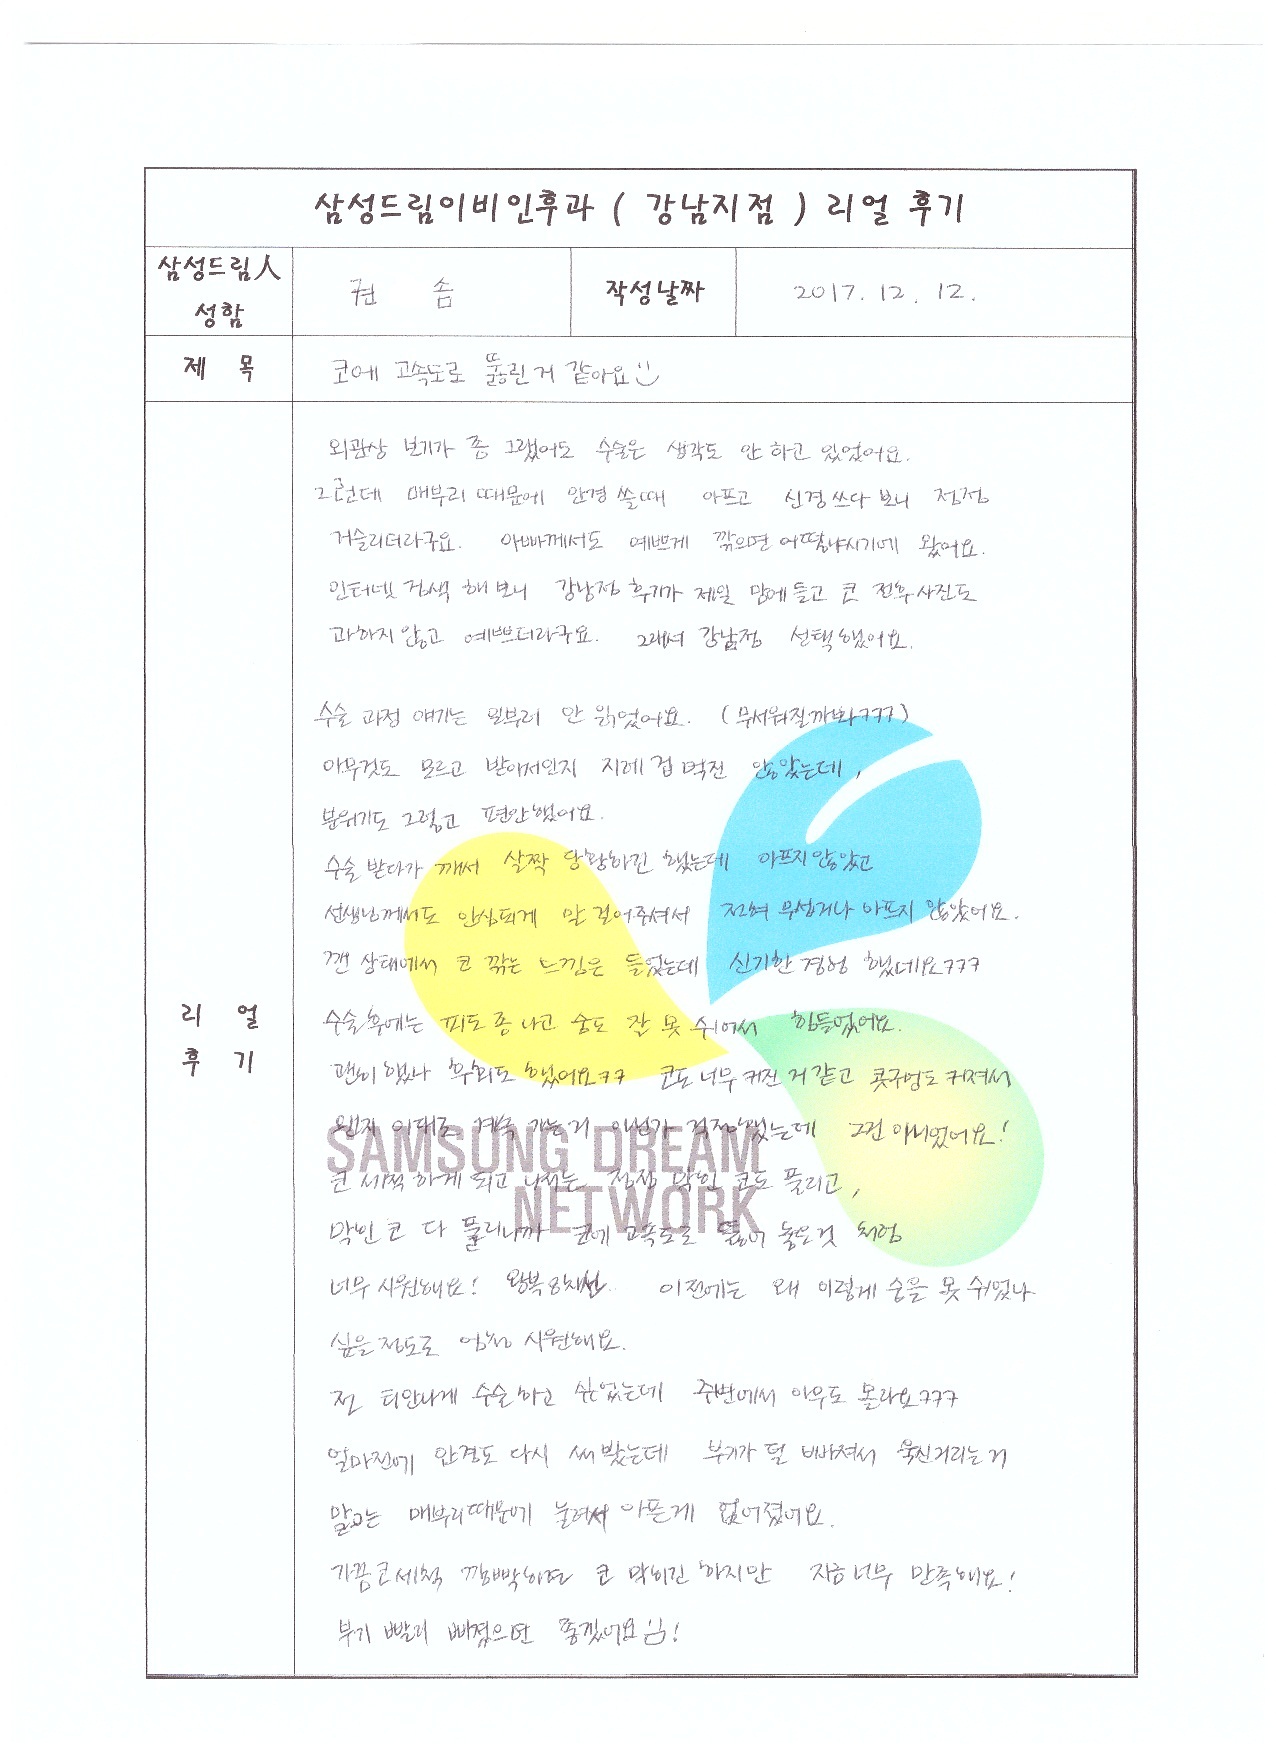 삼성드림이비인후과 ( 강남지점 ) 리얼 후기
삼성드림人 성함
권 솜
작성날짜
2017. 12. 12.
제 목
코에 고속도로 뚫린거 같아요
리 얼 후 기
외관상 보기가 좀 그랬어도 수술은 생각도 안 하고 있었어요.
그런데 매부리 때문에 안경 쓸때 아프고 신경쓰다 보니 점점
거슬리더라구요. 아빠께서도 예쁘게 깎으면 어떻냐시기에 왔어요.
인터넷 검색 해 보니 강남점 후기가 제일 맘에 들고 코 전후 사진도
과하지 않고 예쁘더라구요. 그래서 강남점 선택했어요.
수술 과정 얘기는 일부러 안 읽었어요. (무서워질까봐ㅋㅋㅋ)
아무것도 모르고 받아서인지 지레 겁먹진 않았는데,
분위기도 그렇고 편안했어요.
수술 받다가 깨서 살짝 당황하긴 했는데 아프지 않았고
선생님께서도 안심되게 말 걸어주셔서 전혀 무섭거나 아프지 않았어요.
깬 상태에서 코 깎는 느낌은 들었는데 신기한 경험 했네요ㅋㅋㅋ
수술후에는 피도 좀 나고 숨도 잘 못 쉬어서 힘들었어요.
괜히 했나 후회도 했어요ㅋㅋ 코도 너무 커진 거 같고 콧구멍도 커져서
왠지 이대로 계속 가는거 아닌가 걱정했는데 그건 아니었어요!
코 세척 하게 되고 나서는 점점 막힌 코도 풀리고,
막힌 코 다 풀리니까 코에 고속도로 뚫어 놓은것 처럼
너무 시원해요! 왕복 8차선. 이전에는 왜 이렇게 숨을 못 쉬었나
싶을 정도로 엄청 시원해요.
전 티안나게 수술하고 싶었는데 주변에서 아무도 몰라요ㅋㅋㅋ
얼마전에 안경도 다시 써 봤는데 부기가 덜 빠져서 욱신거리는거
말고는 매부리때문에 눌려서 아픈게 없어졌어요.
가끔 코세척 깜빡하면 코 막히긴 하지만 지금 너무 만족해요!
부기 빨리 빠졌으면 좋겠어요!
SAMSUNG DREAM
NETWORK